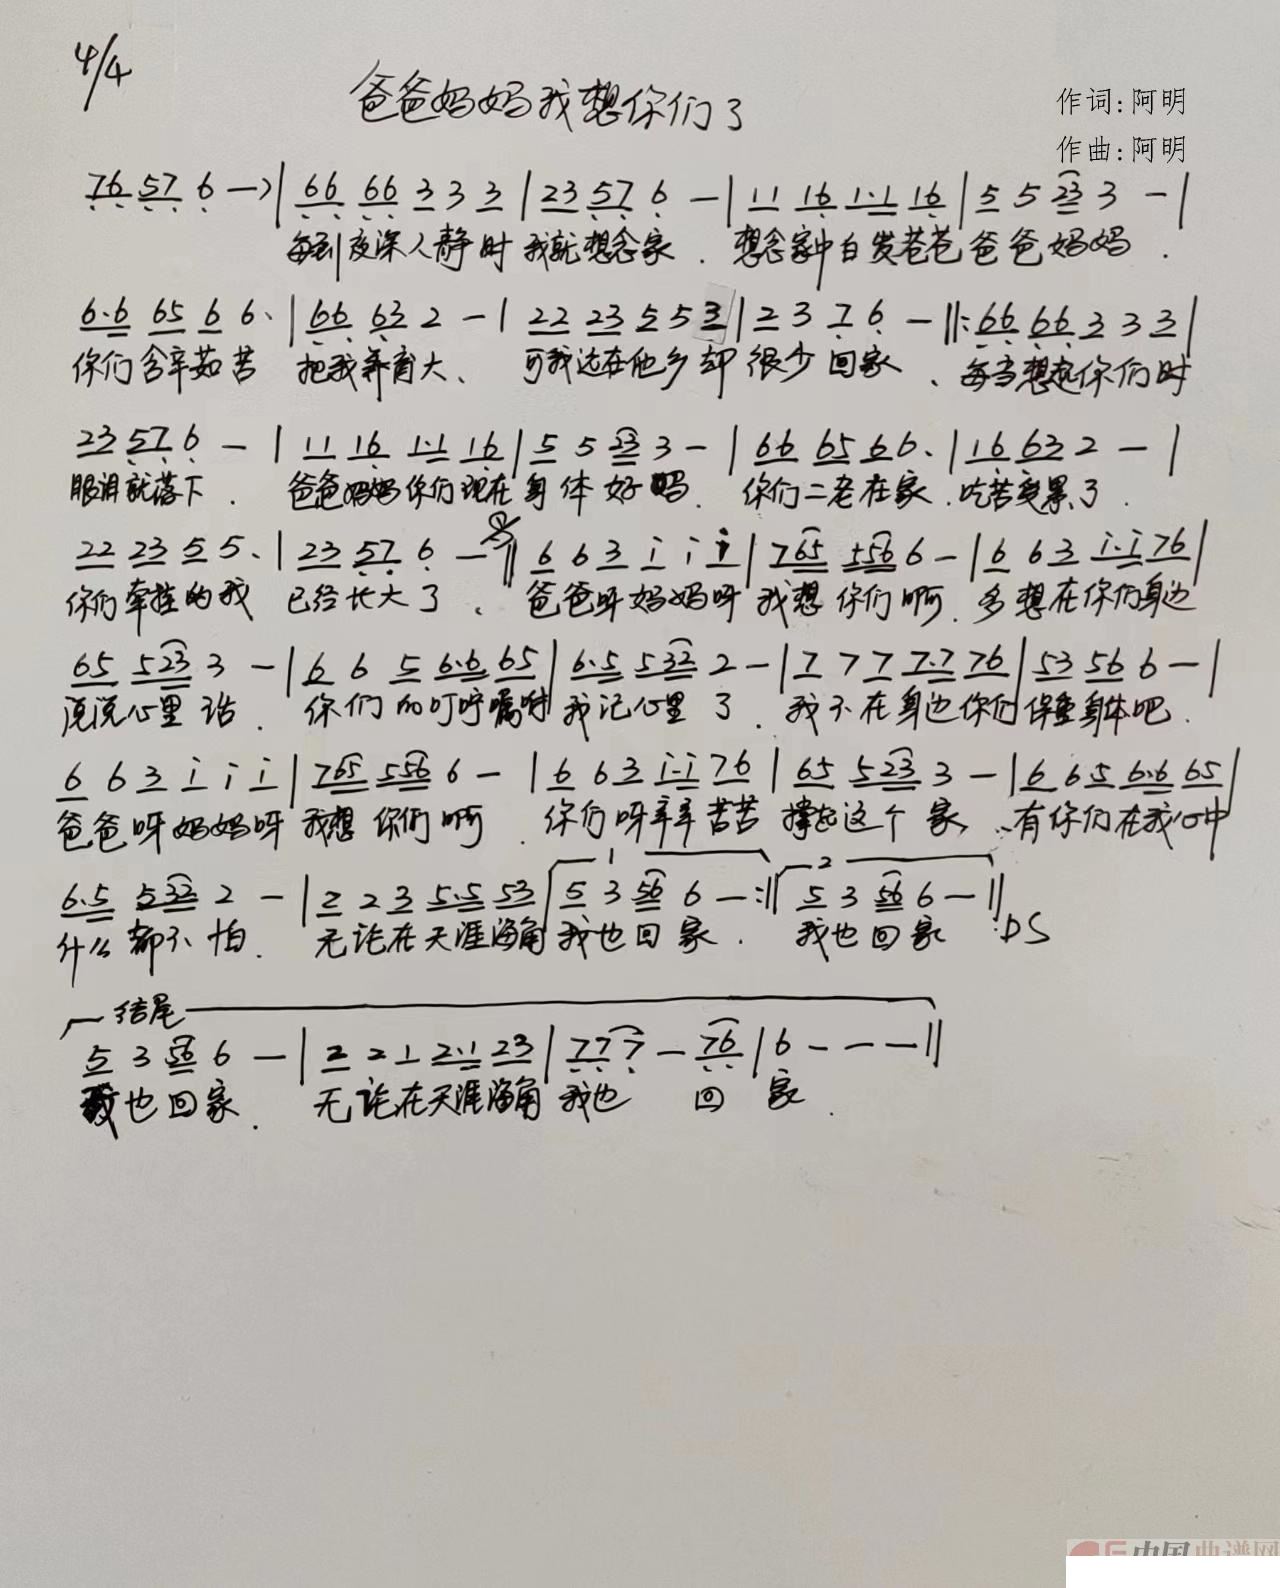 4/4
爸爸妈妈我想你们了
作词:阿明
作曲:阿明
76 57 6 — | 66 66 3 3 3 | 23 57 6 — | 11 16 1·1 16 | 5 5 23 3 — |
每到夜深人静时 我就想念家 . 想念家中白发苍苍爸爸妈妈 .
6·6 65 6 6· | 66 63 2 — | 22 23 5 5 3 | 2 3 7 6 — ‖: 66 66 3 3 3 |
你们含辛茹苦 把我养育大、 可我远在他乡却 很少回家 、每当想起你们时
23 57 6 — | 11 16 1·1 16 | 5 5 23 3 — | 66 65 6 6· | 16 63 2 — |
眼泪就落下 . 爸爸妈妈你们现在身体好吗 . 你们二老在家 . 吃苦受累了 .
22 23 5 5· | 23 57 6 — ‖ 6 6 3 i i i | 765 556 6 — | 6 6 3 i·i 76 |
你们牵挂的我 已经长大了 、 爸爸呀妈妈呀 我想你们啊 . 多想在你们身边
65 523 3 — | 6 6 5 6·6 65 | 6·5 532 2 — | 7 7 7 7·7 76 | 53 56 6 — |
说说心里话 . 你们的叮咛嘱咐我记心里了 . 我不在身边你们保重身体吧 .
6 6 3 i i i | 765 556 6 — | 6 6 3 i·i 76 | 65 523 3 — | 6 6 5 6·6 65 |
爸爸呀妈妈呀 我想你们啊 . 你们呀辛辛苦苦 撑起这个家、有你们在我心中
1 2
6·5 532 2 — | 2 2 3 5·5 53 | 5 3 56 6 — :‖ 5 3 56 6 — ‖
什么都不怕 . 无论在天涯海角 我也回家 . 我也回家 D.S
结尾
5 3 56 6 — | 2 2 1 2·1 23 | 77 7 — 76 | 6 — — — ‖
我也回家 . 无论在天涯海角 我也 回 家 .
中国曲谱网